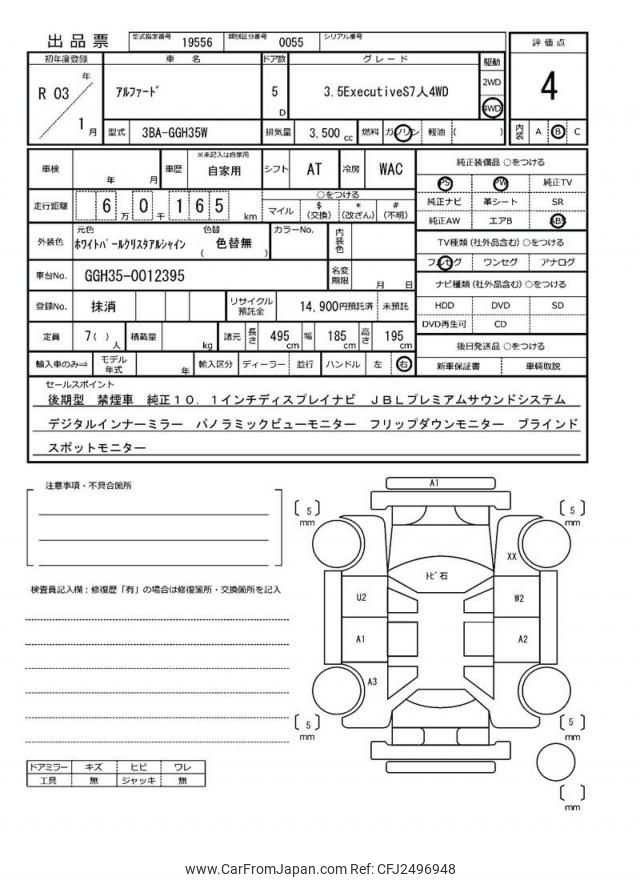 出品票
型式指定番号 19556 類別区分番号 0055 シリアル番号
初年度登録 車名 ドア数 グレード 駆動 評価点
R 03 年 1 月 アルファード 5 D 3.5ExecutiveS7人4WD 2WD 4WD 4
型式 3BA-GGH35W 排気量 3,500 cc 燃料 ガソリン 軽油 ( ) 内装 A B C
車検 年 月 車歴 ※未記入は自家用 自家用 シフト AT 冷房 WAC
走行距離 6 万 0 千 1 6 5 km ○をつける マイル $ (交換) * (改ざん) # (不明)
外装色 元色 ホワイトパールクリスタルシャイン 色替 ( 色替無 ) カラーNo. 内装色
車台No. GGH35-0012395 名変期限 月 日
登録No. 抹消 リサイクル預託金 14,900円預託済 未預託
定員 7( ) 人 積載量 kg 諸元 長さ 495 cm 幅 185 cm 高さ 195 cm
輸入車のみ⇒ モデル年式 年 輸入区分 ディーラー 並行 ハンドル 左 右
純正装備品 ○をつける
PS PW 純正TV
純正ナビ 革シート SR
純正AW エアB ABS
TV種類 (社外品含む) ○をつける
フルセグ ワンセグ アナログ
ナビ種類 (社外品含む) ○をつける
HDD DVD SD
DVD再生可 CD
後日発送品 ○をつける
新車保証書 車輌取説
セールスポイント
後期型 禁煙車 純正10.1インチディスプレイナビ JBLプレミアムサウンドシステム
デジタルインナーミラー パノラミックビューモニター フリップダウンモニター ブラインド
スポットモニター
注意事項・不具合箇所
検査員記入欄:修復歴「有」の場合は修復箇所・交換箇所を記入
ドアミラー キズ ヒビ ワレ
工具 無 ジャッキ 無
A1
[ 5 ] mm [ 5 ] mm
XX
トビ石
U2 W2
A1 A2
A3
[ 5 ] mm [ 5 ] mm
[ ] mm
www.CarFromJapan.com Ref: CFJ2496948